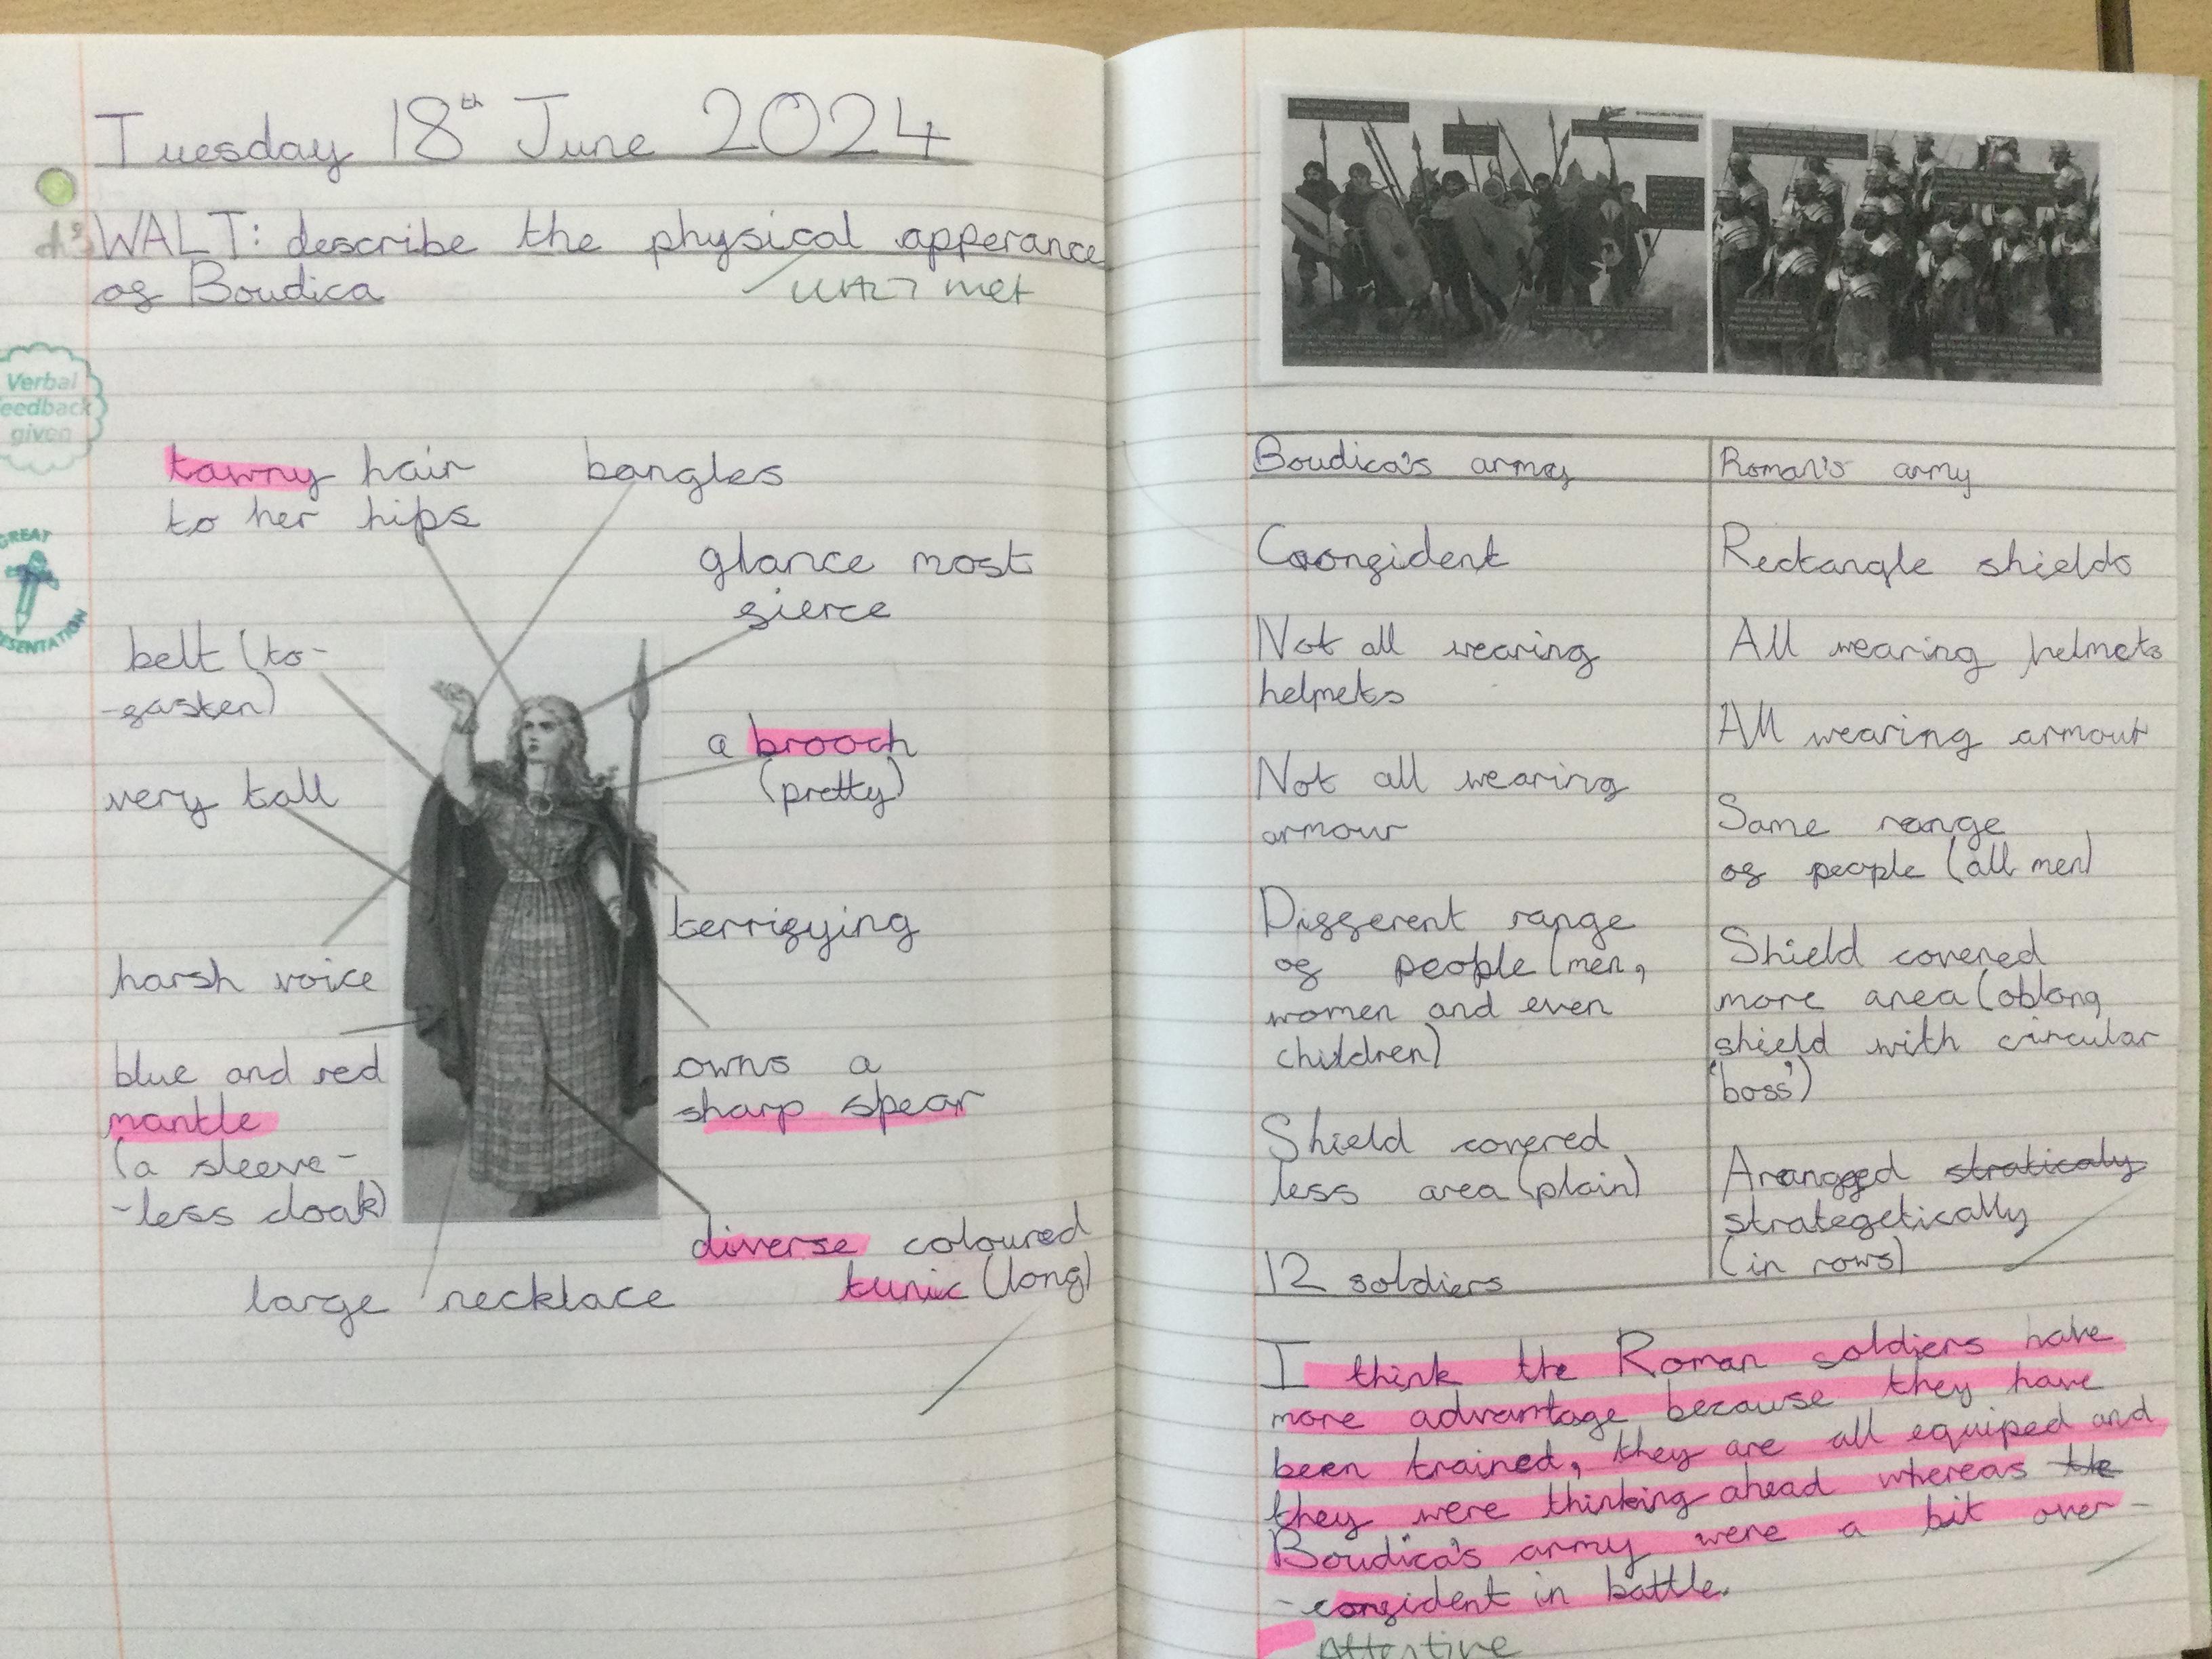 Tuesday 18th June 2024
WALT: describe the physical apperance
of Boudica
WALT met
Verbal
feedback
given
GREAT
PRESENTATION
tawny hair
to her hips
bangles
glance most
fierce
belt (to-
-fasten)
a brooch
(pretty)
very tall
terrifying
harsh voice
owns a
sharp spear
blue and red
mantle
(a sleeve-
-less cloak)
diverse coloured
tunic (long)
large necklace
Boudica's army
Confident
Not all wearing
helmets
Not all wearing
armour
Different range
of people (men,
women and even
children)
Shield covered
less area (plain)
12 soldiers
Roman's army
Rectangle shields
All wearing helmets
All wearing armour
Same range
of people (all men)
Shield covered
more area (oblong
shield with circular
'boss')
Aranged straticaly
strategetically
(in rows)
I think the Roman soldiers have
more advantage because they have
been trained, they are all equiped and
they were thinking ahead whereas the
Boudica's army were a bit over-
-confident in battle.